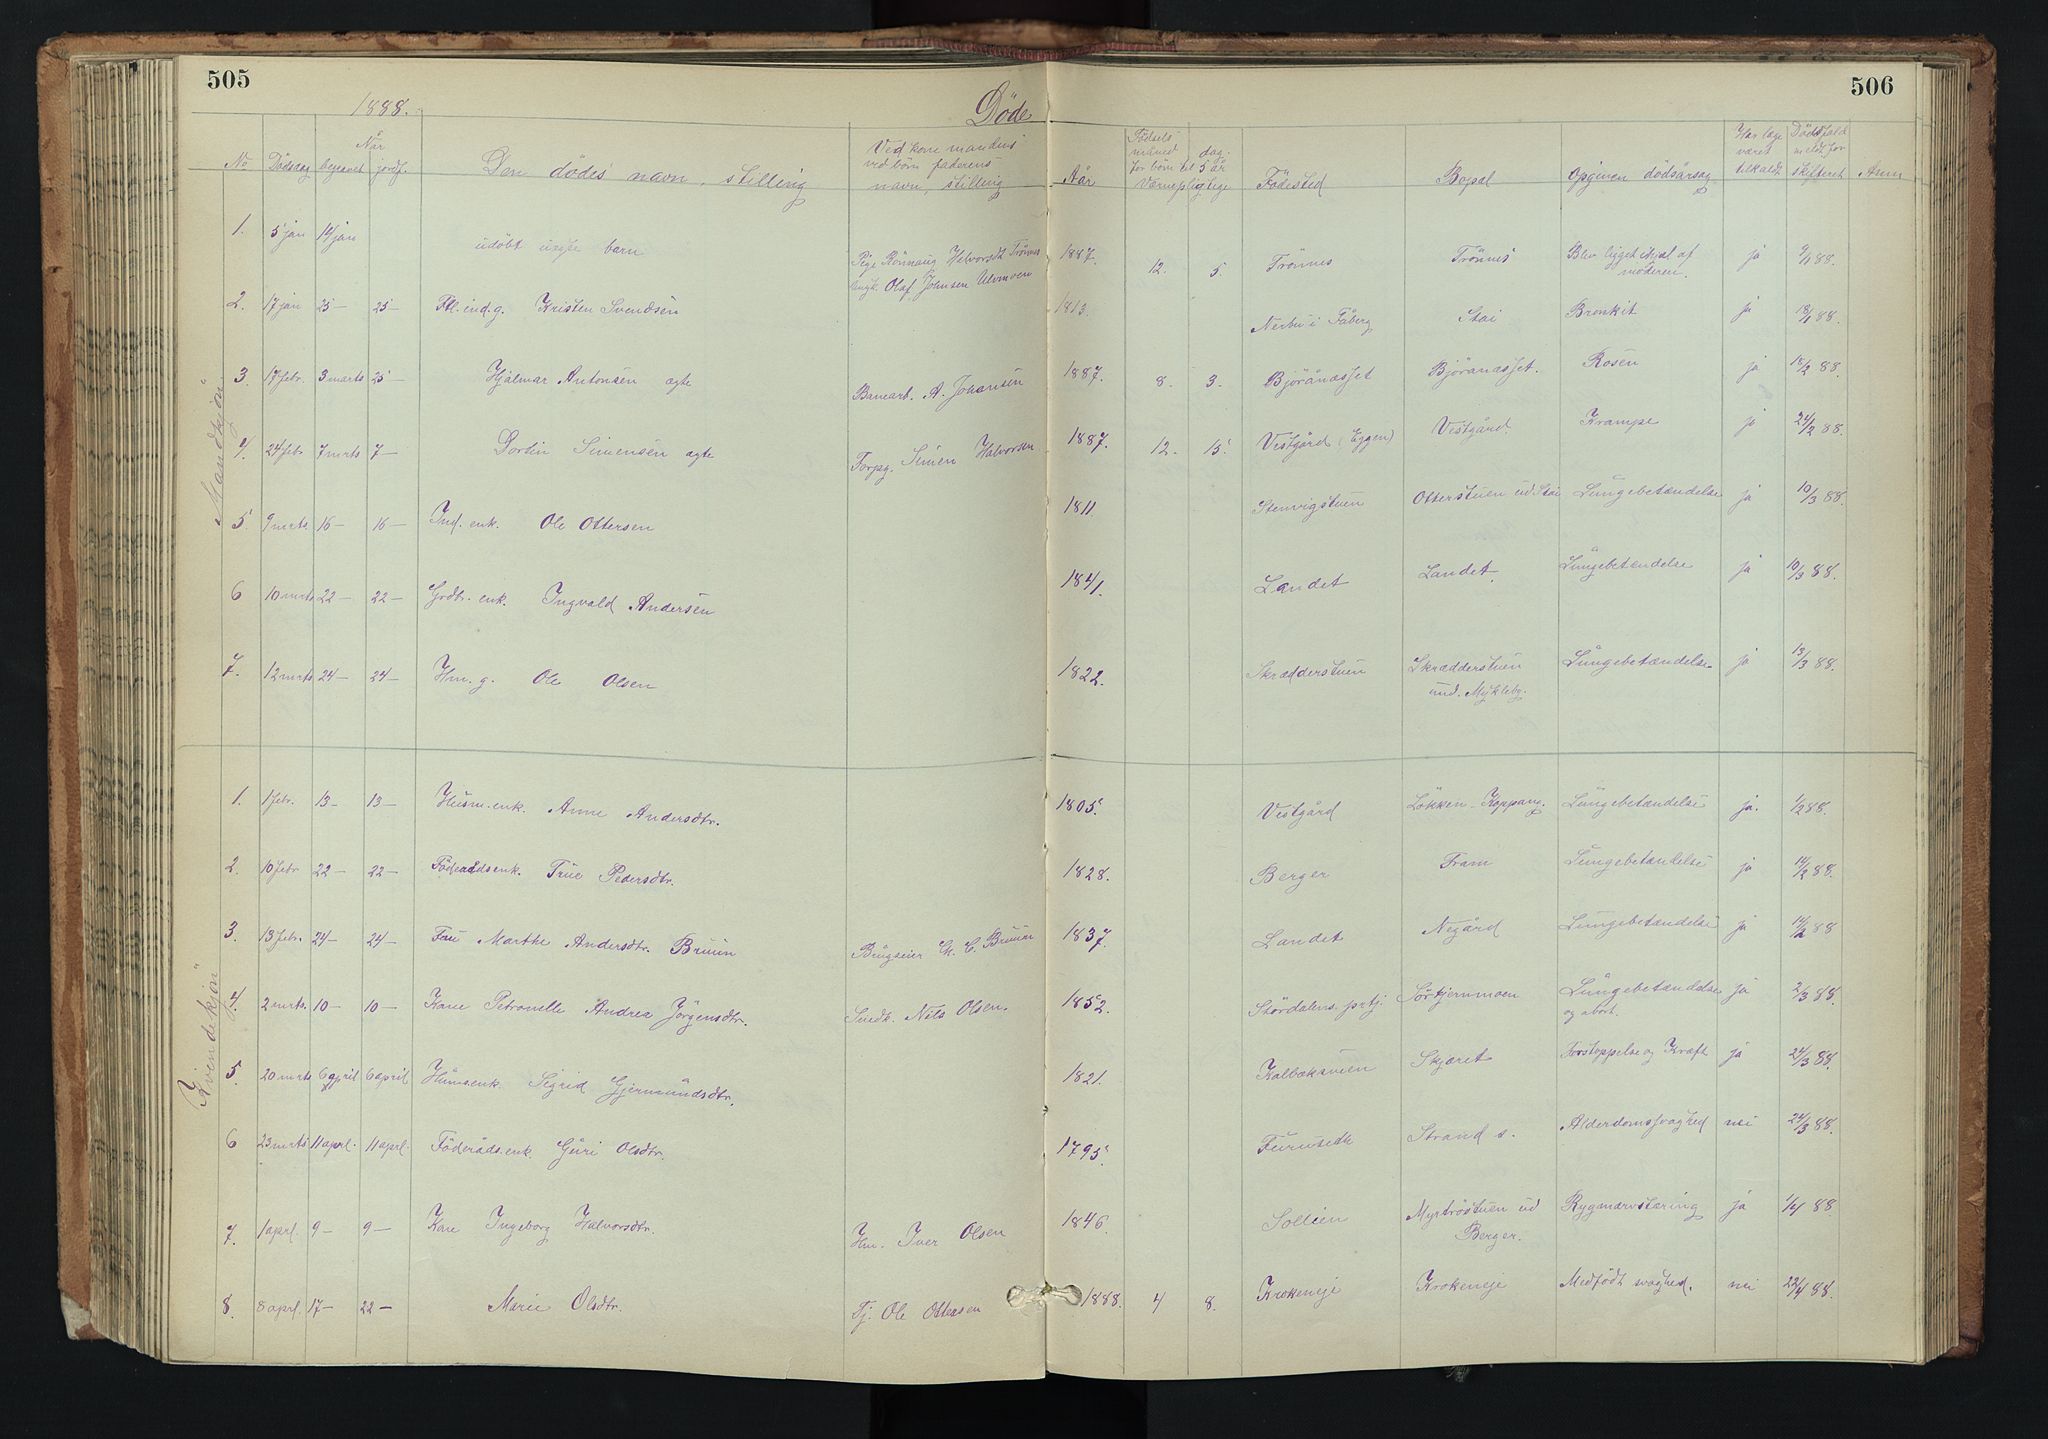 505
506
1888.
Døde
No Dødsdag begravet Når jordf. Den dødes navn, stilling Ved kone mandens ved børn faderens navn, stilling År Fødsels måned dag for børn til 5 år Værnepligtige Fødested Bopæl Opgiven dødsårsag Har læge været tilkaldt Dødsfald meldt for skifteret Anm
Mandkjøn
1. 5 jan 14 jan udøbt uægte barn Pige Rönnaug Halvorsdt Trönnes Ungk. Olaf Johnsen Ulvmoen 1887. 12. 5. Trönnes Trönnes Blev ligget ihjæl af moderen. ja 9/1 88.
2. 17 jan 25 — 25 — Fl. ind. g. Kristen Svendsen 1813. Nerbu i Fåberg Stai Bronkit ja 18/1 88.
3. 17 febr. 3 marts 25 — Hjalmar Antonsen ægte Banearb. A. Johansen 1887. 8. 3. Björåneset Björåneset. Rosen ja 18/2 88.
4. 24 febr 7 mrts 7 — Simensen ægte Forpg. Simen Halvorsen 1887. 12. 15. Vestgård (Eggen) Vestgård. Krampe ja 24/2 88.
5. 9 mrts 16 — 16 — Ind. enk. Ole Ottersen 1811. Stenvigstuen Otterstuen ud. Stai Lungebetændelse ja 10/3 88.
6 10 mrts 22 — 22 — Grdbr. enk. Ingvald Andersen 1841. Landet Landet. Lungebetændelse ja 10/3 88.
7. 12 mrts 24 — 24 — Hm. g. Ole Olsen 1822. Skrædderstuen Skrædderstuen und. Mykleby. Lungebetændelse ja 13/3 88.
Kvindekjøn
1. 1 febr. 13 — 13 — Husm. enk. Anne Andersdtr. 1805. Vestgård Løkken - Koppang. Lungebetændelse ja. 1/2 88.
2. 10 febr 22 — 22 — Föderådsenk. True Pedersdtr. 1828. Berger Fram Lungebetændelse ja 14/2 88.
3. 13 febr. 24 — 24 — Fru Marthe Andersdtr. Bruun Brugseier Bruun 1837. Landet Negård Lungebetændelse ja 14/2 88
4. 2 mrts. 10 — 10 — Kone Petronelle Andrea Jörgensdtr. Snedk. Nils Olsen. 1852. Stördalens. prtj. Sörkjernmoen Lungebetændelse og abort. ja 2/3 88.
5. 20 mrts 6 april 6 april Husm.enk. Sigrid Gjermundsdtr. 1821. Kolbækmoen Skjæret Forstoppelse og Kræft ja 24/3 88.
6 23 mrts 11 aprl. 11 aprl. Föderåds.enk. Guri Olsdtr. 1795. Furuseth Strand s. Alderdomssvaghed nei 24/3 88.
7. 1 aprl. 9 — 9 — Kone Ingeborg Halvorsdtr. Hm. Iver Olsen 1846. Sollien Myrtröstuen ud Berger. Rygmarvstæring ja 1/4 88.
8. 8 aprl. 17 — 22 — Marie Olsdtr. Tj. Ole Ottersen 1888. 4 8. Krokeneje Krokeneje Medfødt svaghed. nei 22/4 88.